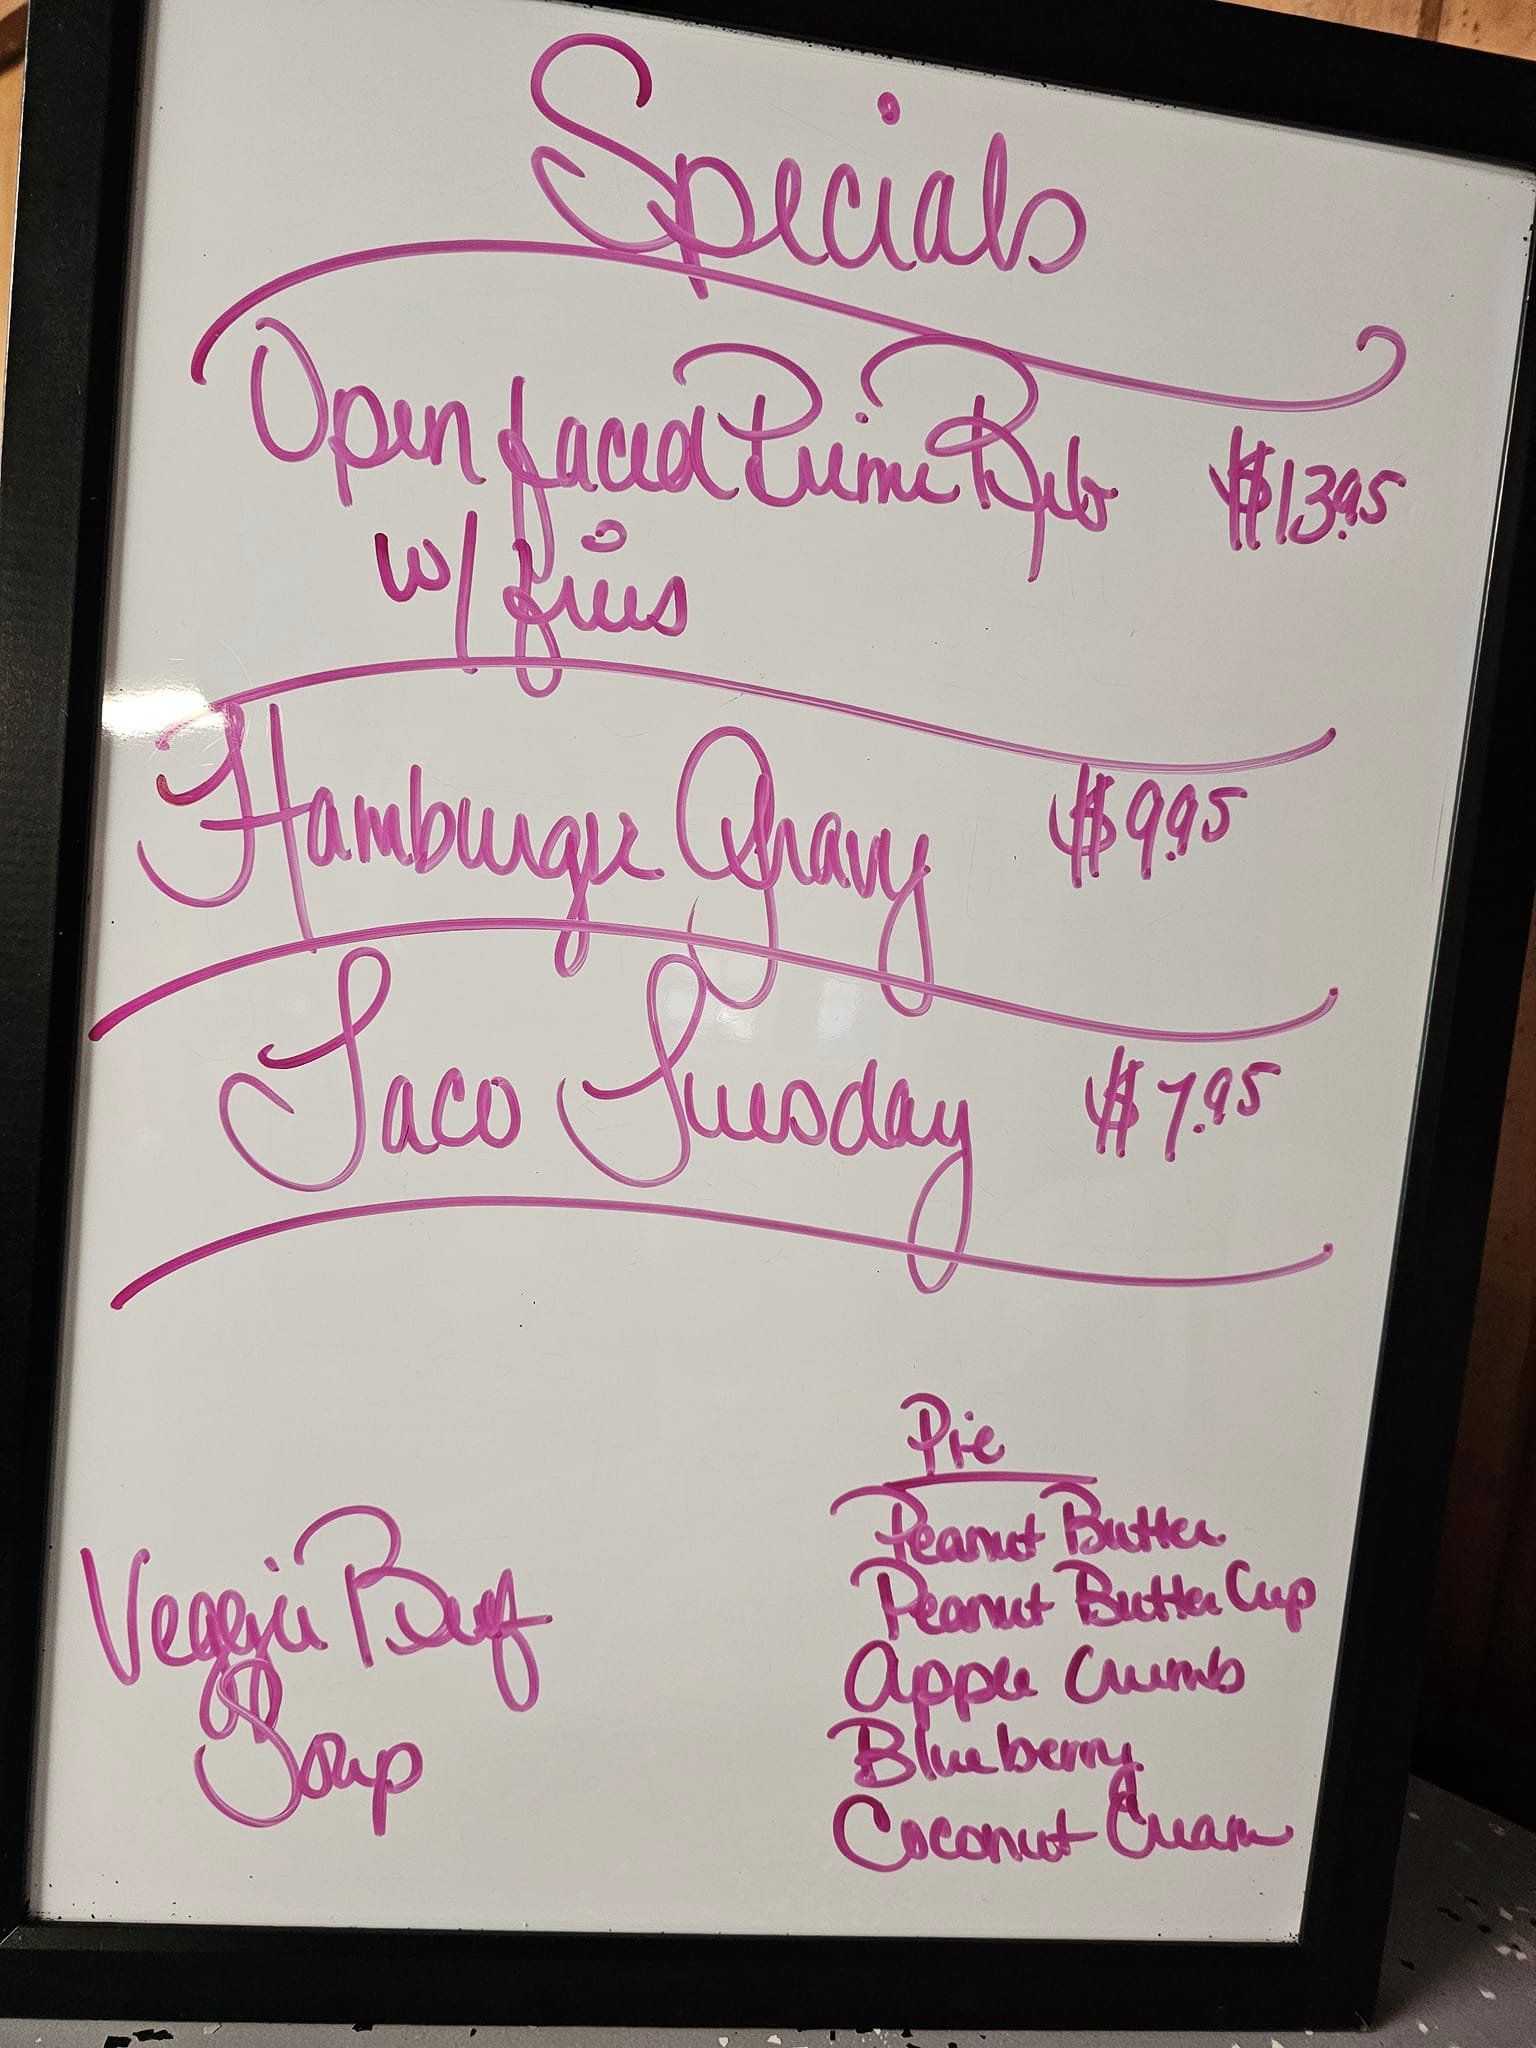 Specials
Open faced Prime Rib $13.95
w/ fries
Hamburger Gravy $9.95
Taco Tuesday $7.95
Veggie Beef
Soup
Pie
Peanut Butter
Peanut Butter Cup
Apple Crumb
Blueberry
Coconut Cream